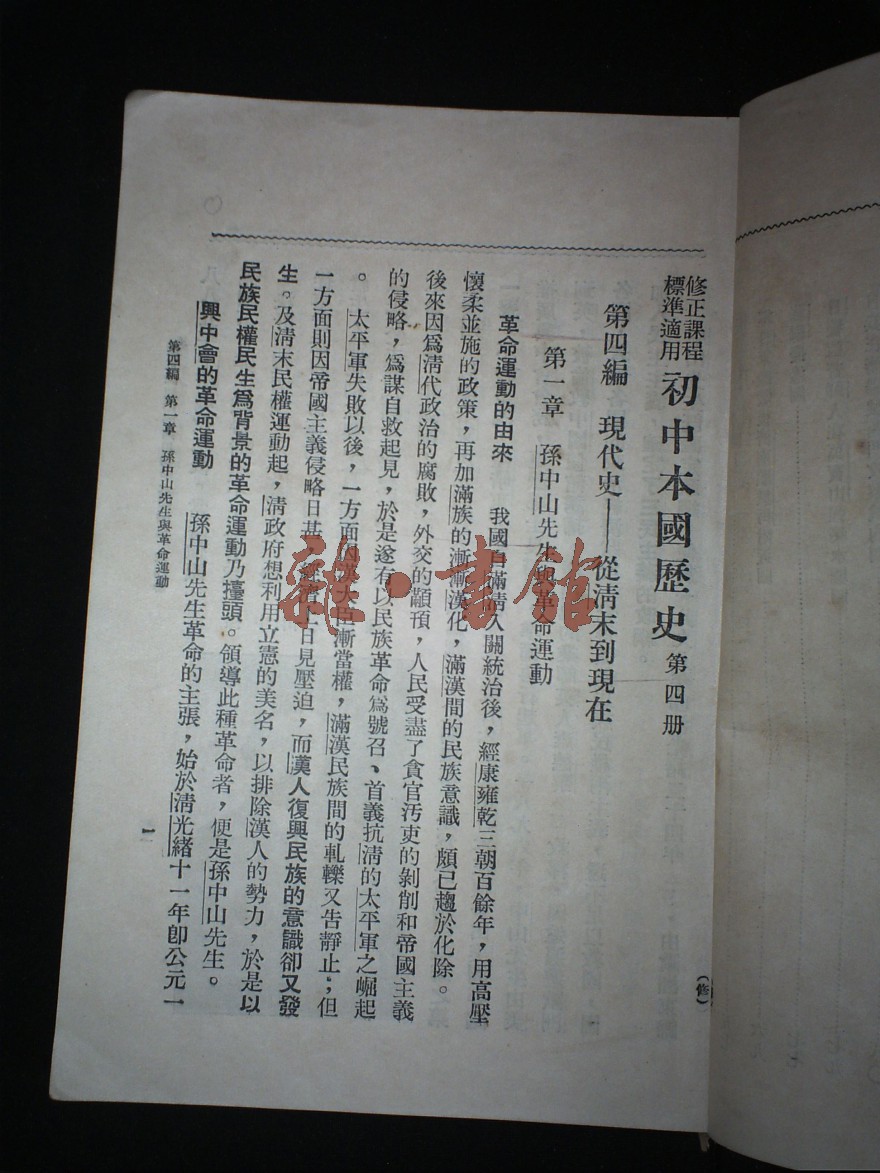 修正課程
標準適用
初中本國歷史 第四册
第四編 現代史——從清末到現在
第一章 孫中山先生與革命運動
革命運動的由來 我國自滿清入關統治後，經康雍乾三朝百餘年，用高壓
懷柔並施的政策，再加滿族的漸漸漢化，滿漢間的民族意識，頗已趨於化除。
後來因爲清代政治的腐敗，外交的顢頇，人民受盡了貪官汚吏的剝削和帝國主義
的侵略，爲謀自救起見，於是遂有以民族革命爲號召、首義抗清的太平軍之崛起
。太平軍失敗以後，一方面因漢大臣漸當權，滿漢民族間的軋轢又告靜止；但
一方面則因帝國主義侵略日甚，經濟上日見壓迫，而漢人復興民族的意識卻又發
生。及清末民權運動起，清政府想利用立憲的美名，以排除漢人的勢力，於是以
民族民權民生爲背景的革命運動乃擡頭。領導此種革命者，便是孫中山先生。
興中會的革命運動 孫中山先生革命的主張，始於清光緒十一年卽公元一
第四編 第一章 孫中山先生與革命運動
一
（修）
雜·書館